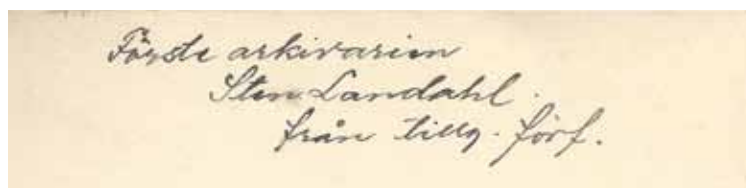 Förste arkivarien
Sten Landahl.
från tillg. förf.